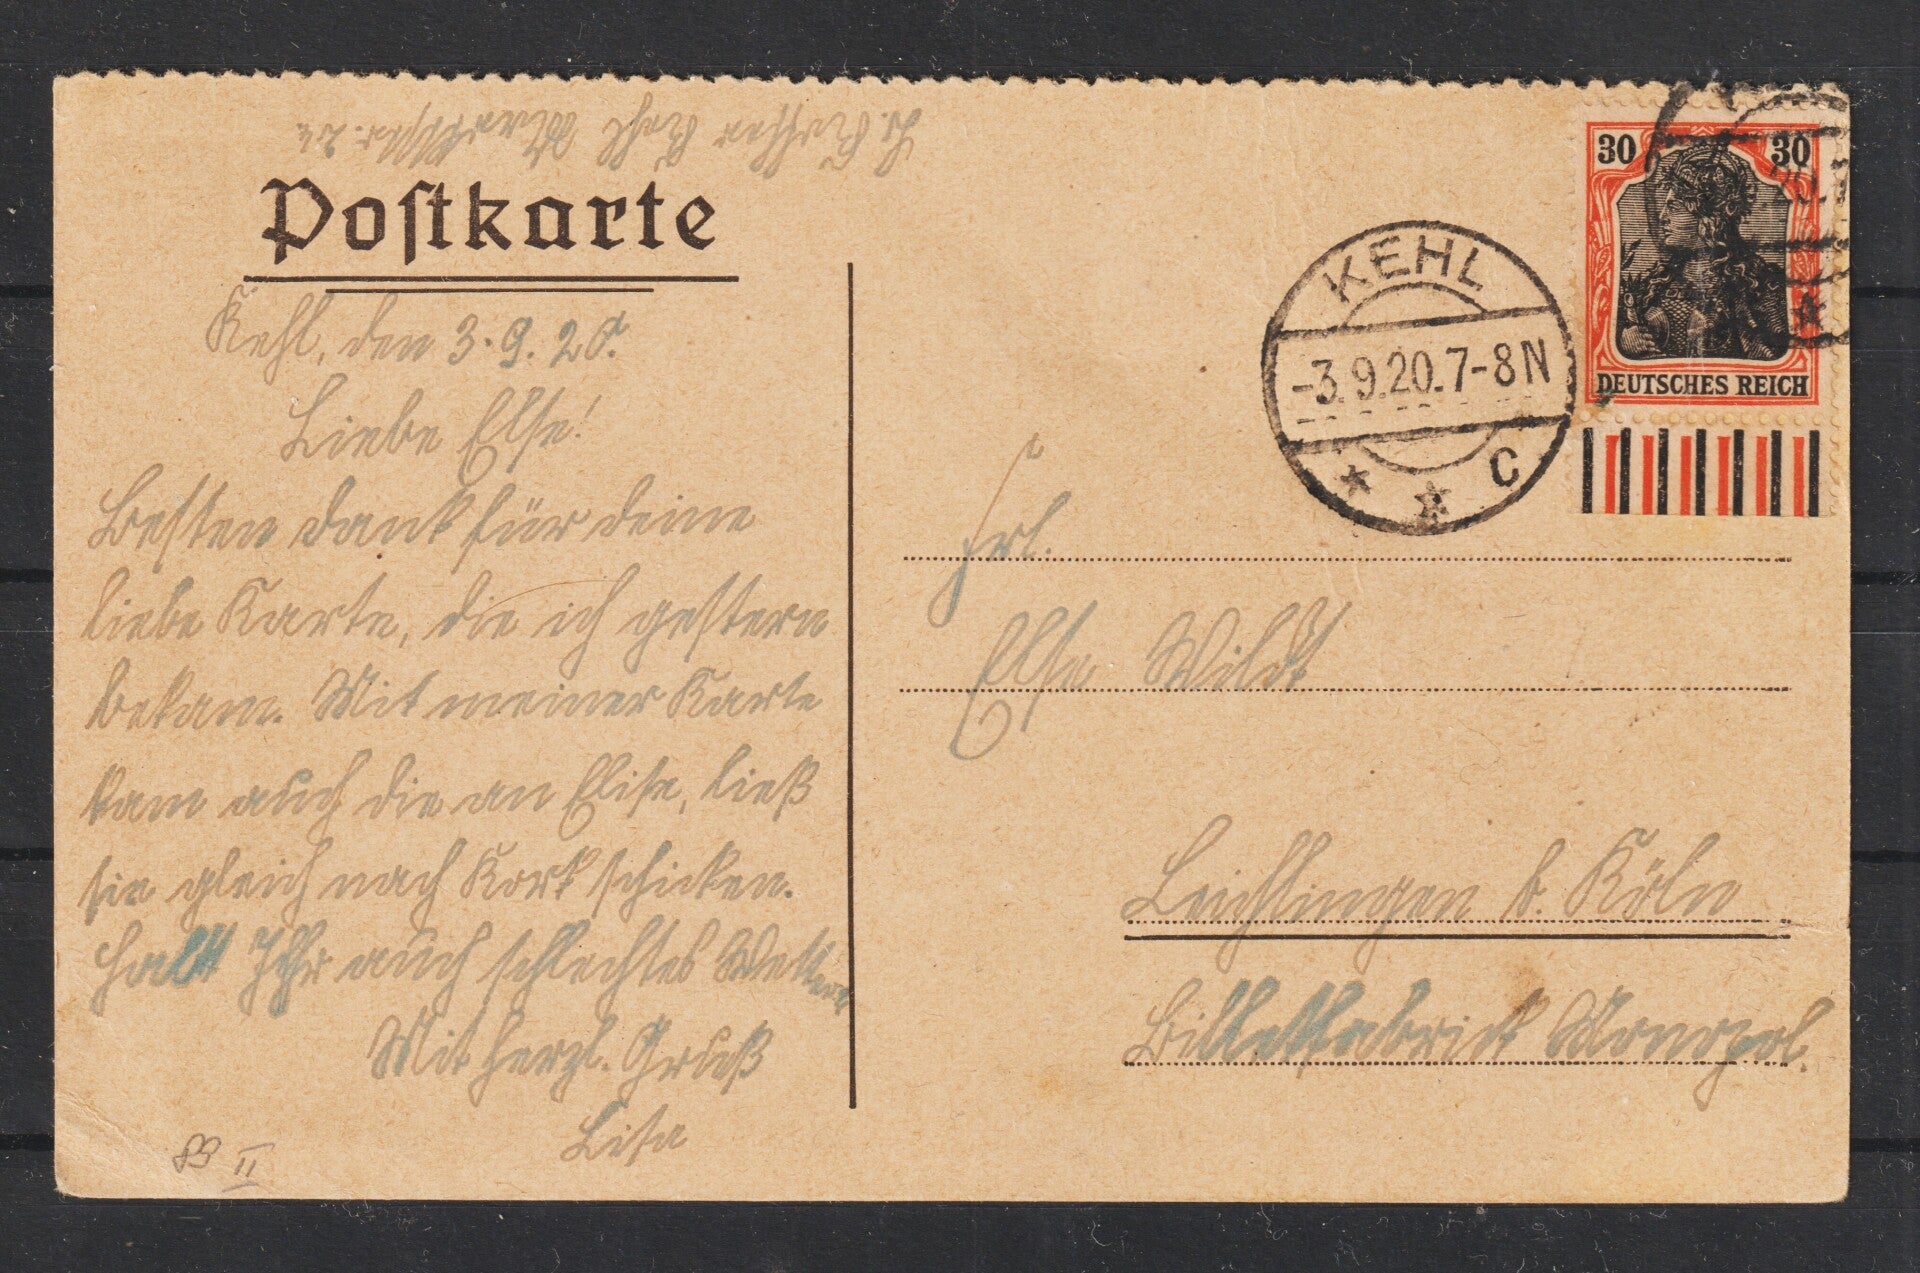 Postkarte
Kehl, den 3.9.20.
Liebe Else!
Besten Dank für deine
liebe Karte, die ich gestern
bekam. Mit meiner Karte
kam auch die an Elise, ließ
sie gleich nach Kork schicken.
Habt Ihr auch schlechtes Wetter
Mit herzl. Gruß
Lisa
II
30 30
DEUTSCHES REICH
KEHL
-3.9.20.7-8N
* * C
Frl.
Else Wildt
Leichlingen b. Köln
Billetfabrick Monopol.
Kehl